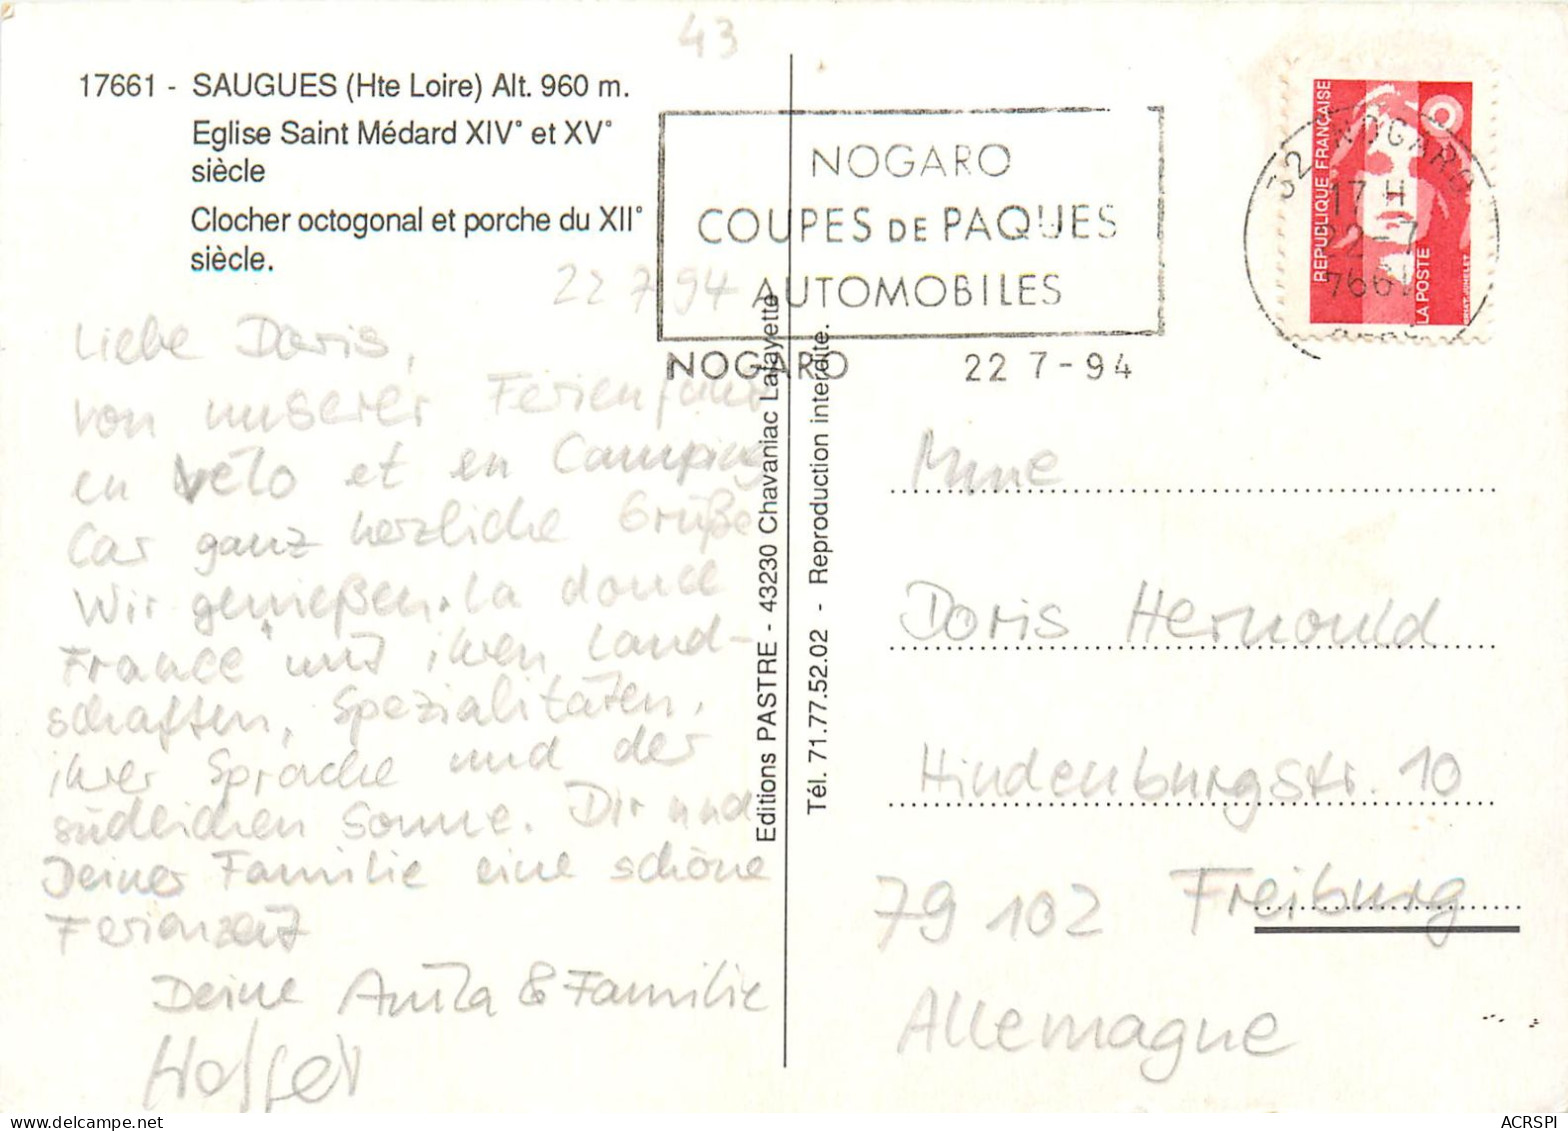 43
17661 - SAUGUES (Hte Loire) Alt. 960 m.
Eglise Saint Médard XIV° et XV°
siècle
Clocher octogonal et porche du XII°
siècle.
22 7 94
Liebe Doris,
von unserer Ferienfahrt
en Vélo et en Camping
Car ganz herzliche Grüße
Wir genießen la douce
France und ihren Land-
schaften, Spezialitäten,
ihrer Sprache und der
südlichen Sonne. Dir und
Deiner Familie eine schöne
Ferienzeit
Deine Anita & Familie
Holger
Editions PASTRE - 43230 Chavaniac Lafayette
Tél. 71.77.52.02 - Reproduction interdite.
NOGARO
COUPES DE PAQUES
AUTOMOBILES
NOGARO 22 7-94
REPUBLIQUE FRANÇAISE
LA POSTE
32 NOGARO
17 H
22-7
Mme
Doris Hernould
Hindenburgstr. 10
79 102 Freiburg
Allemagne
www.delcampe.net
ACRSPI